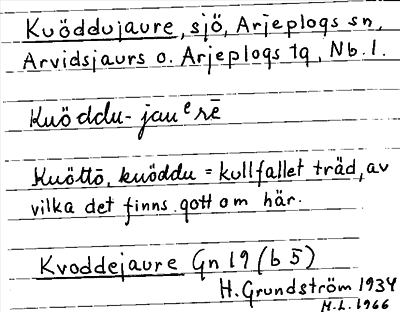 Kuöddujaure, sjö, Arjeplogs sn,
Arvidsjaurs o. Arjeplogs tg, Nb. l.
Kuöddu-jauᵉrē
Kuöttō, kuöddu = kullfallet träd, av
vilka det finns gott om här.
Kvoddejaure Gn 19 (b 5)
H. Grundström 1934
M.L. 1966